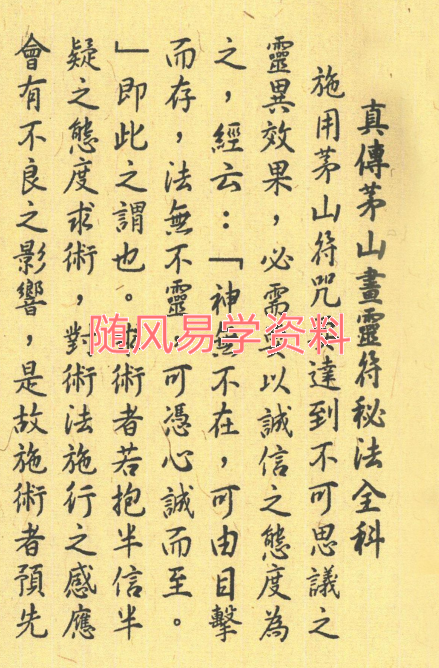 真傳茅山畫靈符秘法全科
施用茅山符咒達到不可思議之
靈異效果，必需以誠信之態度為
之，經云：「神無不在，可由目擊
而存，法無不靈，可憑心誠而至。
」即此之謂也。求術者若抱半信半
疑之態度求術，對術法施行之感應
會有不良之影響，是故施術者預先
随风易学资料